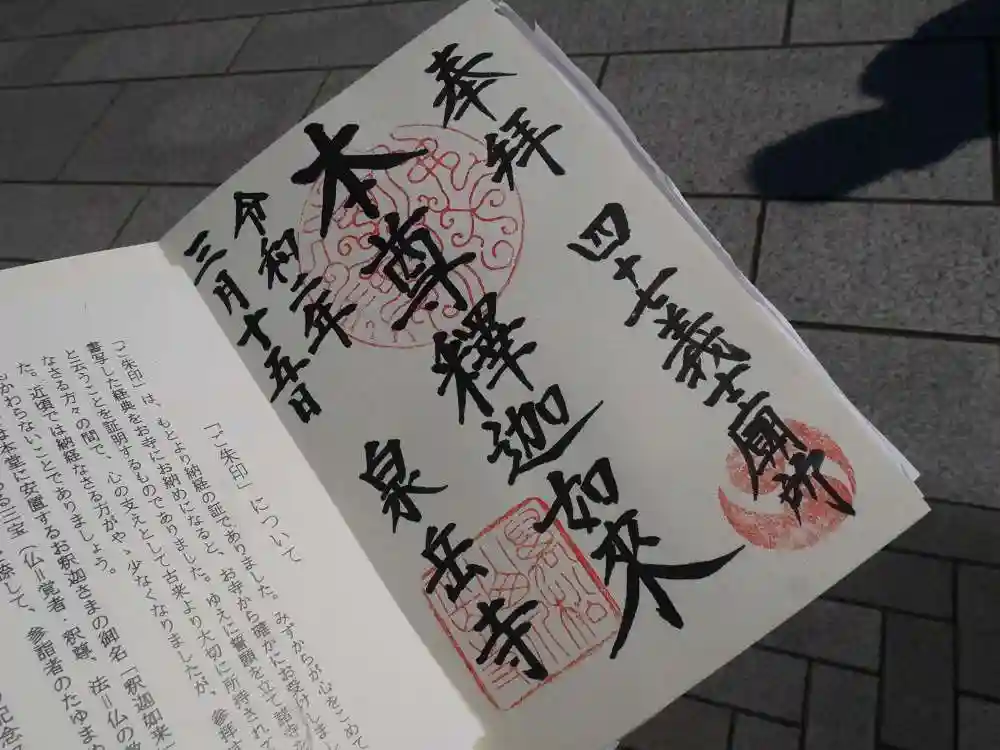 奉拝
四十七義士廟所
本尊釋迦如来
泉岳寺
令和二年
三月十五日
「ご朱印」について
「ご朱印」は、もとより納経の証でありました。みずからが心をこめて
書写した経典をお寺にお納めになると、お寺から確かにお受けしまし
と云うことを証明するものでありました。ゆえに誓願を立て諸
なさる方々の間で、心の支えとして古来より大切に所持されて
た。近頃では納経なさる方がやゝ少なくなりましたが、参拝
かわらないことでありましょう。
は本堂に安置するお釈迦さまの御名「釈迦如来」
三宝（仏＝覚者・釈尊、法＝仏の教
して、参詣者のたゆま